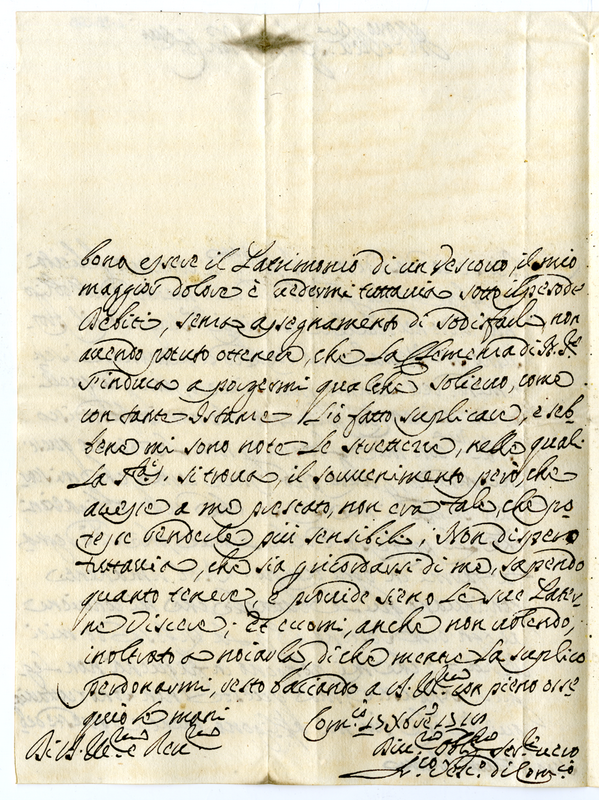 bono essere il Patrimonio di un Vescouo, il mio
maggior dolore è uedermi tuttauia sotto il peso de
Debiti, senza assegnamento di sodisfarli, non
auendo potuto ottenere, che La Clemenza di N. Sre
s'induca a porgermi qualche solieuo, come
con tante Istanze l'ò fatto suplicare, e seb,
bene mi sono note Le strettezze, nelle quali
La Stà. si troua, il souuenimento però, che
auesse a me prestato, non era tale, che po,
tesse renderle più sensibili; Non dispero
tuttauia, che sia p ricordarsi di me, sapendo
quanto tenere, e prouide sieno Le sue Pater,
ne Viscere; Et eccomi, anche non uolendo,
inoltrato a noiarla, di che mentre La suplico
perdonarmi, resto baciando a V. Ill.ma con pieno osse,
quio le mani
Di V. Ill.ma e Reu.ma
Diu.mo Obl.mo Ser.re uero
Vesc.o di